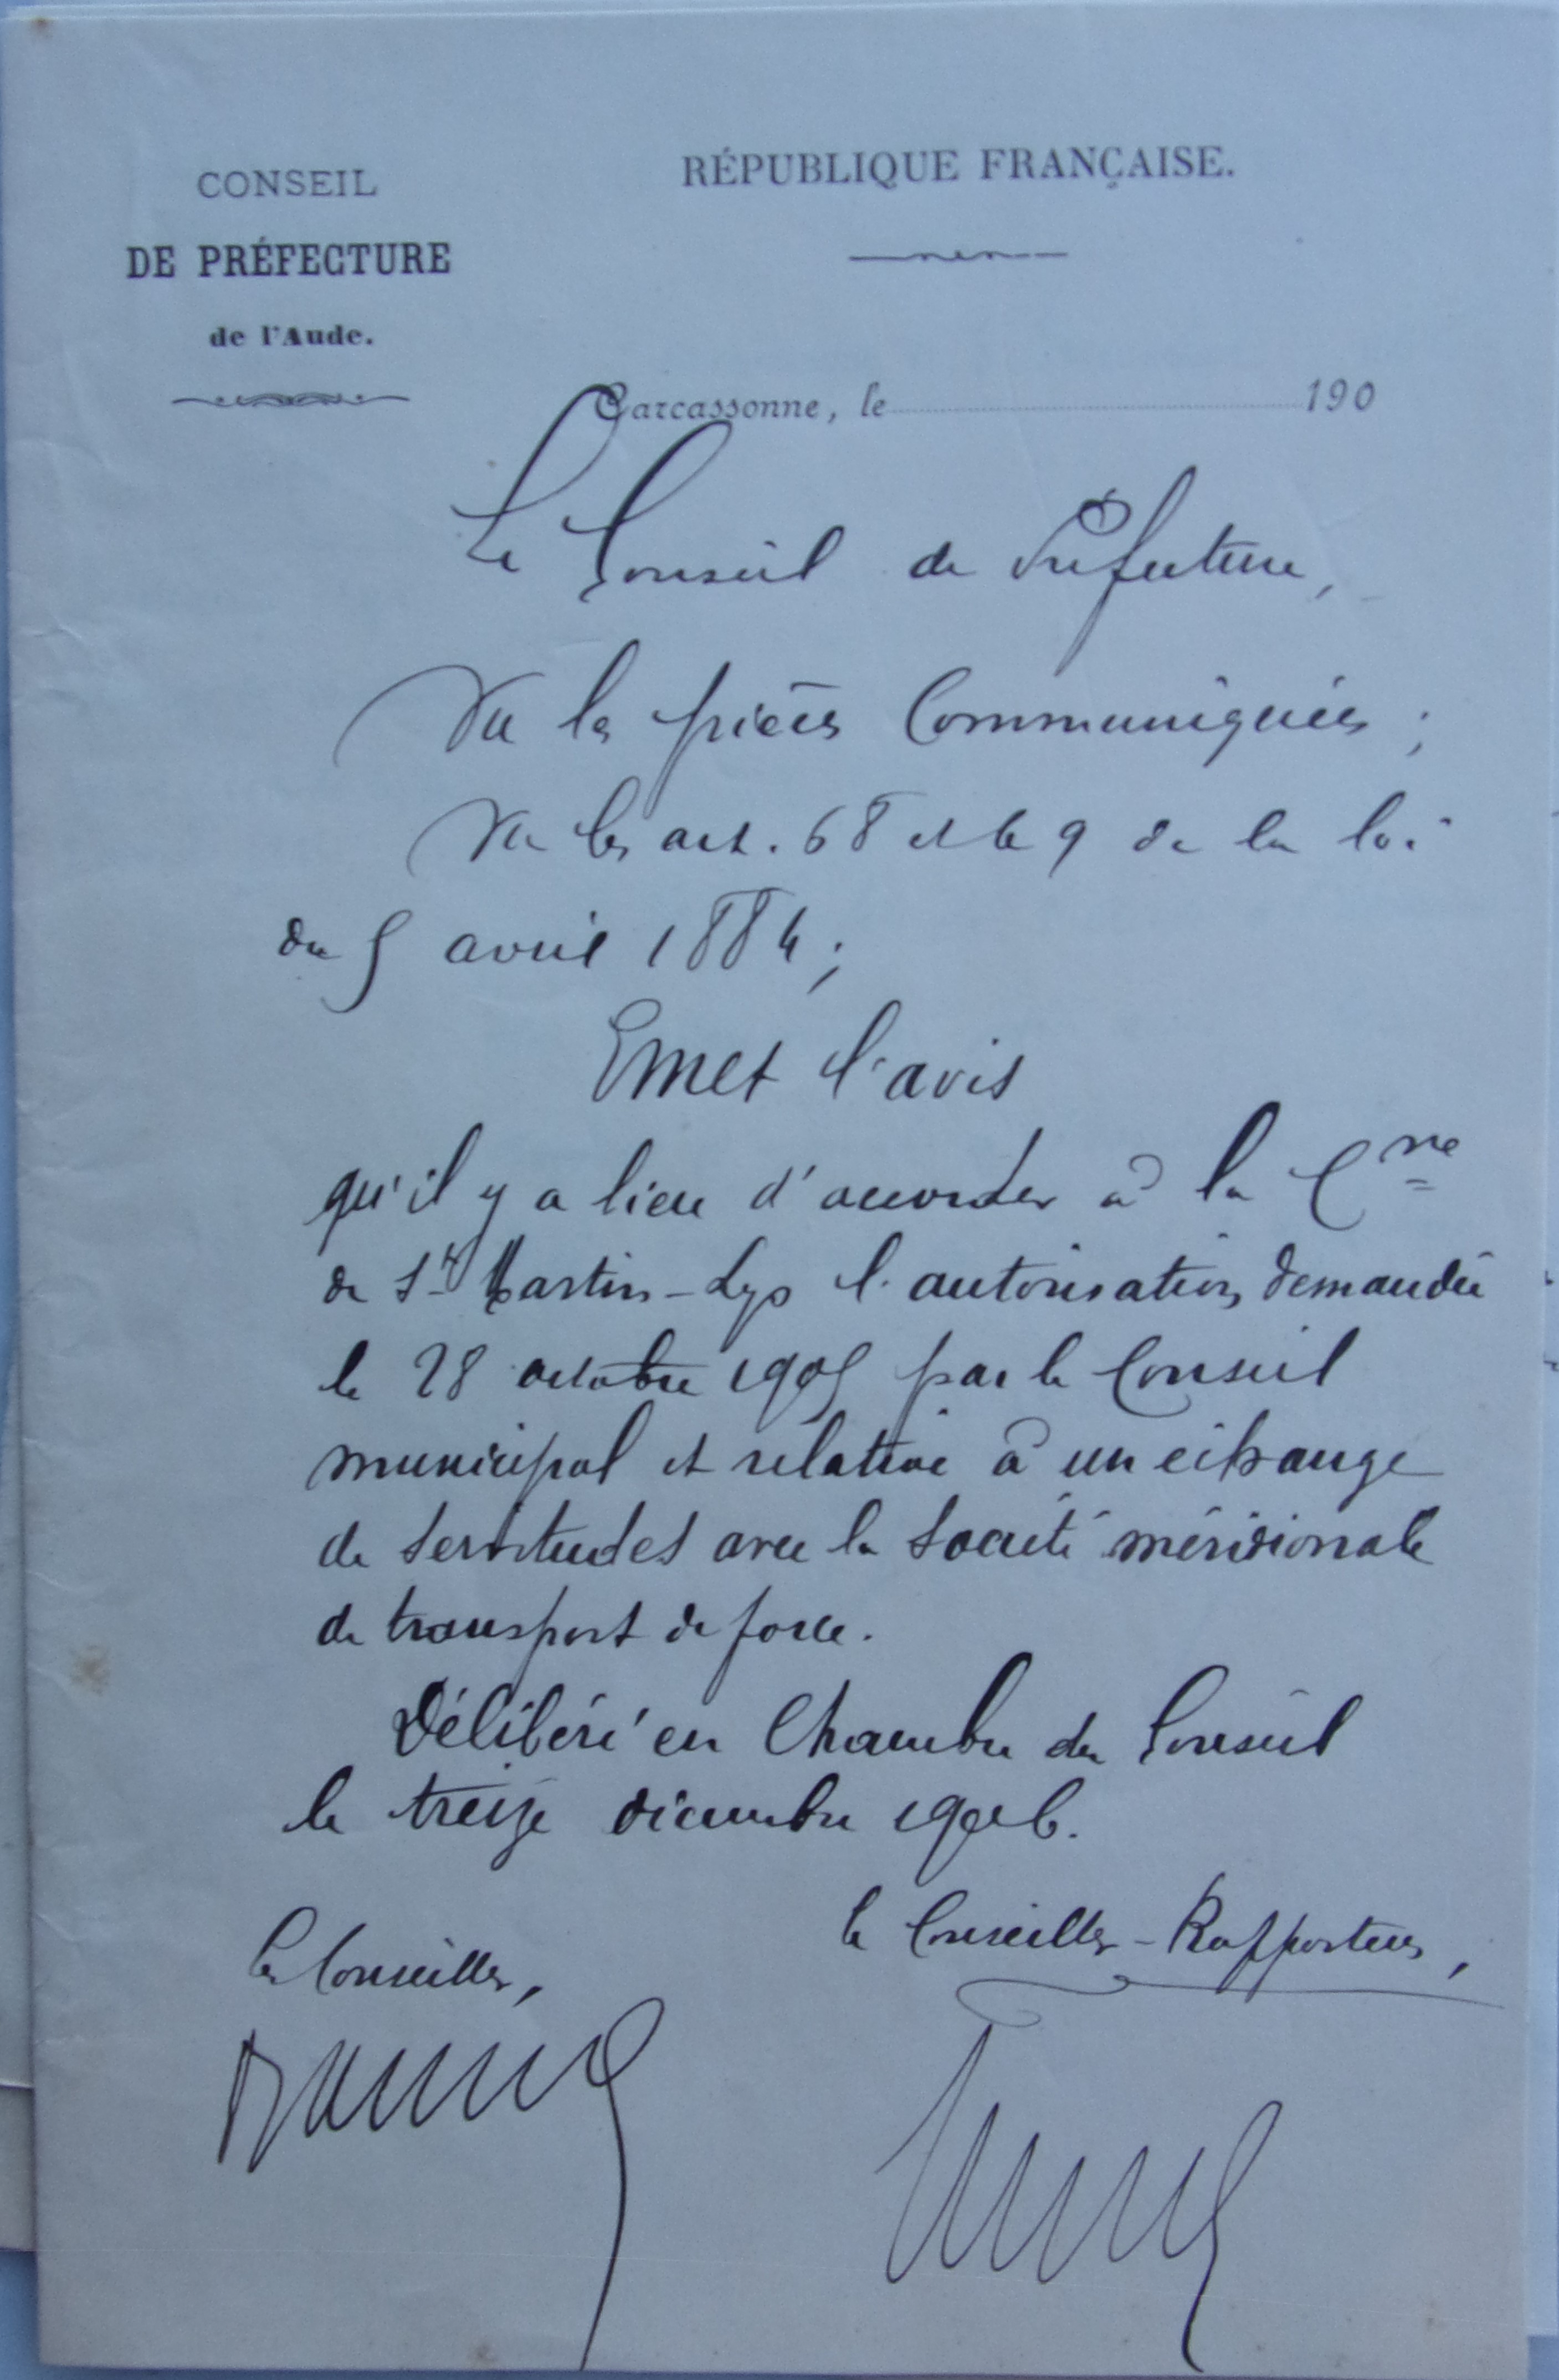 CONSEIL
DE PRÉFECTURE
de l'Aude.
RÉPUBLIQUE FRANÇAISE.
Carcassonne, le 190
Le Conseil de Préfecture,
Vu les pièces Communiquées ;
Vu les art. 68 et 69 de la loi
du 5 avril 1884 ;
Emet l'avis
qu'il y a lieu d'accorder à la Cne
de St Martin-Lys l'autorisation demandée
le 28 octobre 1905 par le Conseil
municipal et relative à un échange
de servitudes avec la Société méridionale
de transport de force.
Délibéré en Chambre du Conseil
le treize décembre 1906.
le Conseiller-Rapporteur,
Le Conseiller,